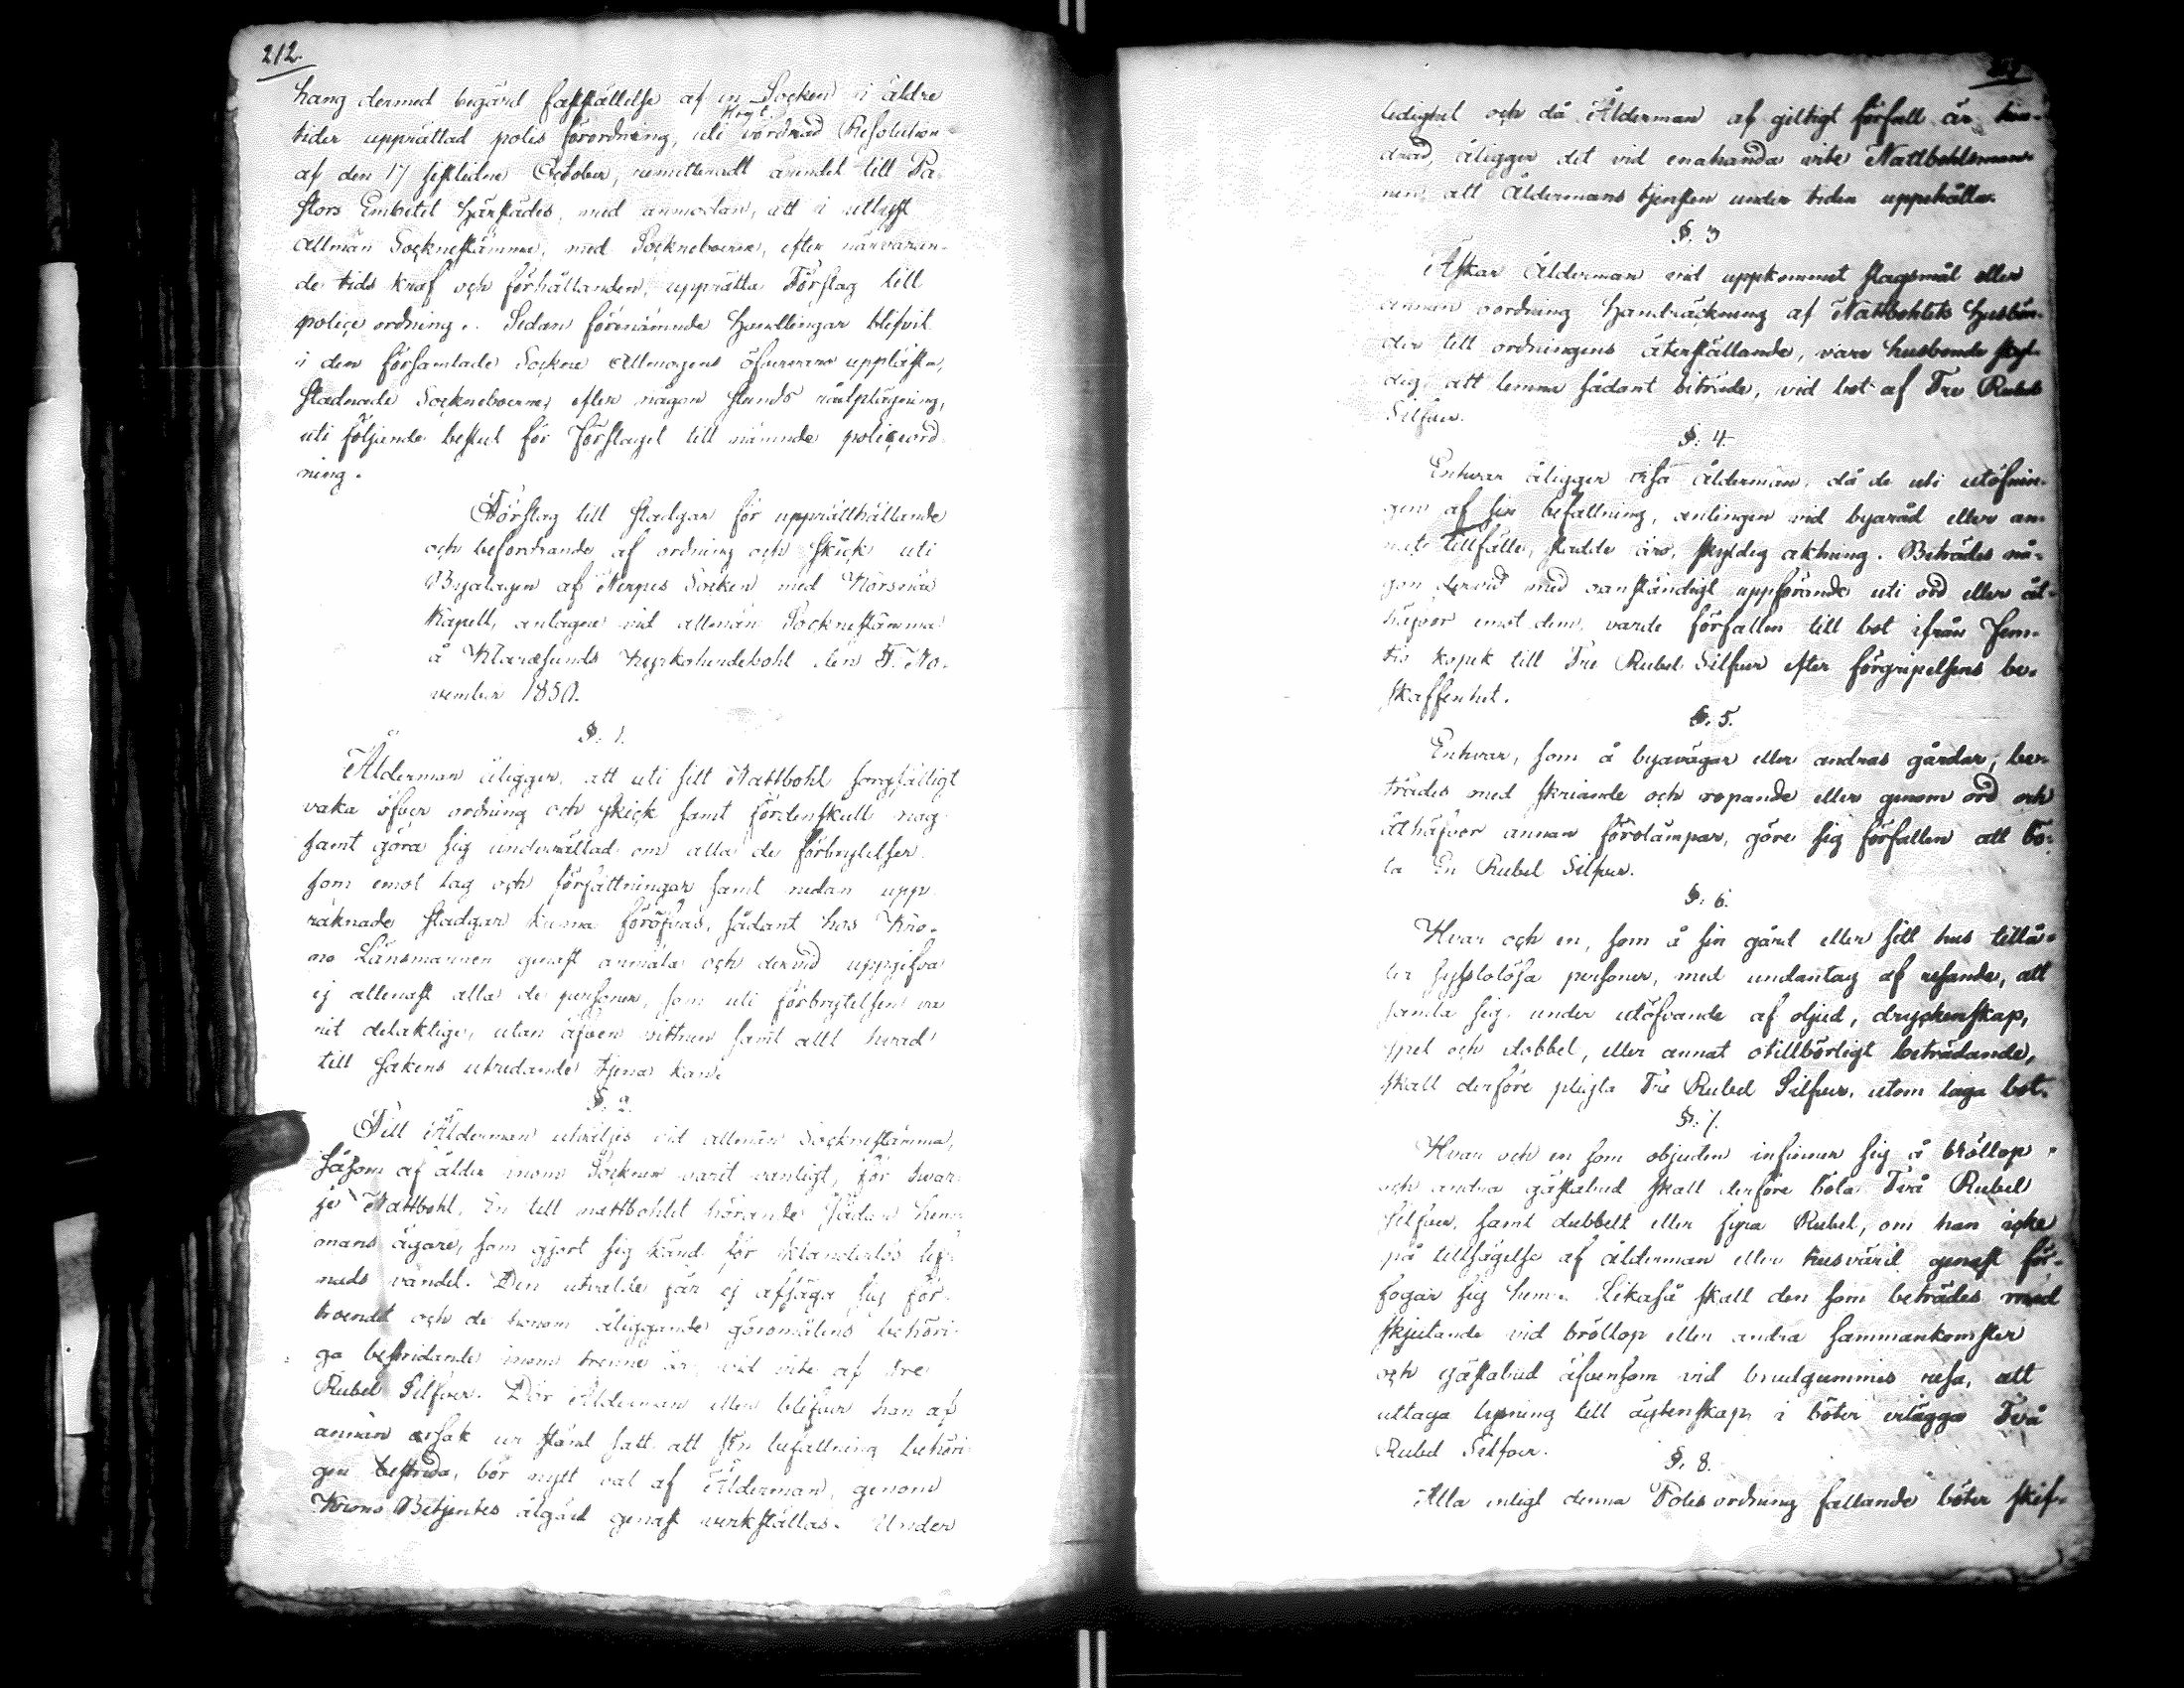 212.
hang dermed begärd fastställelse af en Socken i äldre
Högt.
tider upprättad polis förordning, uti vördnad Resolution
af den 17 sistlidne October, remitteradt ärendet till Pa-
stors Embetet härstädes, med anmodan, att i utlyst
allmän Sockne stämma, med Sockneboerne, efter närvaran-
de tids kraf och förhållanden, upprätta Förslag till
poliçe ordning. Sedan förenämnde handlingar blifvit
i den församlade Sockne Allmogens öfvervaro uppläste,
stadnade Socknebverne, efter någon stunds rådplägning,
uti följande beslut för förslaget till nämnde poliçeord
ning.
Förslag till stadgar för upprätthållande
och befordrande af ordning och skick uti
Byalagen af Nerpes Socken med Korsnäs
Kapell, antagne vid allmän Socknestämma
å Kyrkoherdebohl den 5. No-
vember 1850.
§. 1.
Ålderman åligger, att uti sitt Nattbohl sorgfälligt
vaka öfver ordning och skick samt fördenskull nog
samt göra sig underrättad om alla de förbrytelser
som emot lag och författningar samt nedan upp
räknade stadgar kunna föröfvas, sådant hos Kro-
no Länsmannen genast anmäla och dervid uppgifva
ej allenast alla de personer, som uti förbrytelsen va
rit delaktige, utan äfven vittnen samt allt hvad
till sakens utredande tjena kan.
§. 2.
Till Ålderman utväljes vid allmän Socknestämma,
såsom af ålder inom Socknen varit vanligt, för hvar
je Nattbohl, En till nattbohlet hörande sådan hem-
mans ägare, som gjort sig känd för klanderlös lef-
nads vandel. Den utvalde får ej afsäga sig för-
troendet och de honom åliggande göromålens behöri-
ga bestridande inom trenne år, vid vite af tre
Rubel Silfver. Dör Ålderman eller blifver han af
annan orsak ur stånd satt att sin befattning behöri
gen bestrida, bör nytt val af Ålderman, genom
Krono Betjentes åtgärd genast verkställas. Under
ledighet och då Ålderman af giltigt förfall är hin-
drad, åligger det vid enahanda vite Nattbohlsman-
nen, att Åldermans tjensten under tiden uppehålla.
§. 3
Äskar Ålderman vid uppkommet slagsmål eller
annan oordning handräckning af Nattbohlets husbön-
der till ordningens återställande, vare husbonde skyl-
dig, att lemna sådant biträde, vid bot af Tre Rubel
Silfver.
§. 4.
Enhvar åligger visa Ålderman, då de uti utöfnin-
gen af sin befattning, antingen vid byaråd eller an-
nat tillfälle, stadde äro, skyldig aktning. Beträdes nå-
gon dervid med oanständigt uppförande uti ord eller åt-
häfvor emot dem, varde förfallen till bot ifrån Fem-
tio kopek till Tre Rubel Silfver efter förgripelsens be-
skaffenhet.
§. 5.
Enhvar, som å byavägar eller andras gårdar, be-
trädes med skriande och ropande eller genom ord och
åthäfvor annan förolämpar, göre sig förfallen att bö-
ta En Rubel Silfver.
§. 6.
Hvar och en, som å sin gård eller sitt hus tillå-
ter sysslolösa personer, med undantag af resande, att
samla sig under utöfvande af oljud, dryckenskap,
spel och dobbel, eller annat otillbörligt beträdande,
skall derföre plikta Tre Rubel Silfver, utom laga bot.
§. 7.
Hvar och en som objuden infinner sig å bröllop
och andra gästabud skall derföre böta Två Rubel
Silfver, samt dubbelt eller fyra Rubel, om han icke
på tillsägelse af ålderman eller husvärd genast för-
fogar sig hem. Likaså skall den som beträdes med
skjutande vid bröllop eller andra sammankomster
och gästabud äfvensom vid brudgummes resa, att
uttaga lysning till äktenskap i böter erlägga Två
Rubel Silfver.
§. 8.
Alla enligt denna Polis ordning fallande böter skif-